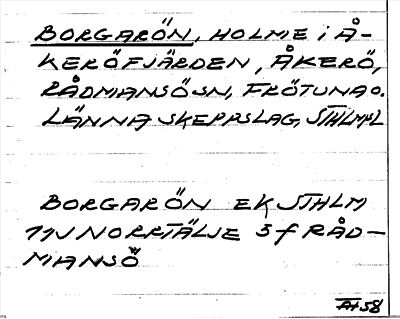 BORGARÖN, HOLME i Å-
KERÖFJÄRDEN, ÅKERÖ,
RÅDMANSÖ SN, FRÖTUNA O.
LÄNNA SKEPPSLAG, STHLMS L
BORGARÖN EK STHLM
11V NORRTÄLJE 5 f RÅD-
MANSÖ
At 58